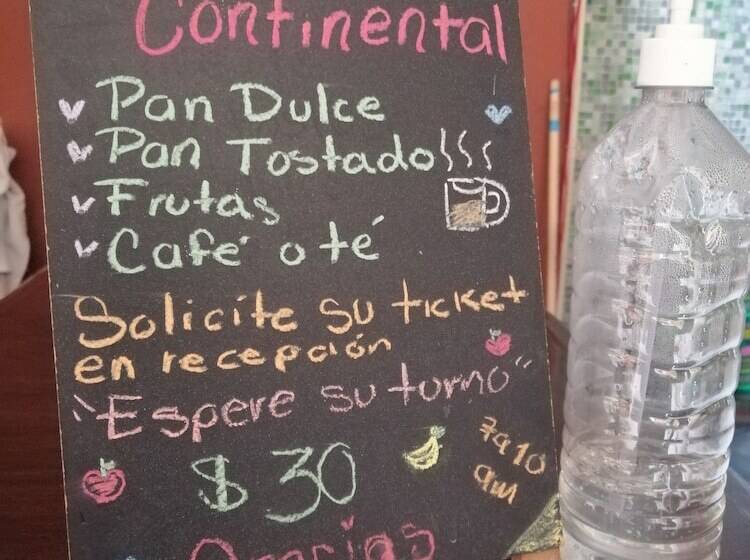 Continental
Pan Dulce
Pan Tostado
Frutas
Café o té
Solicite su ticket
en recepción
"Espere su turno"
$30
7 a 10
am
Gracias